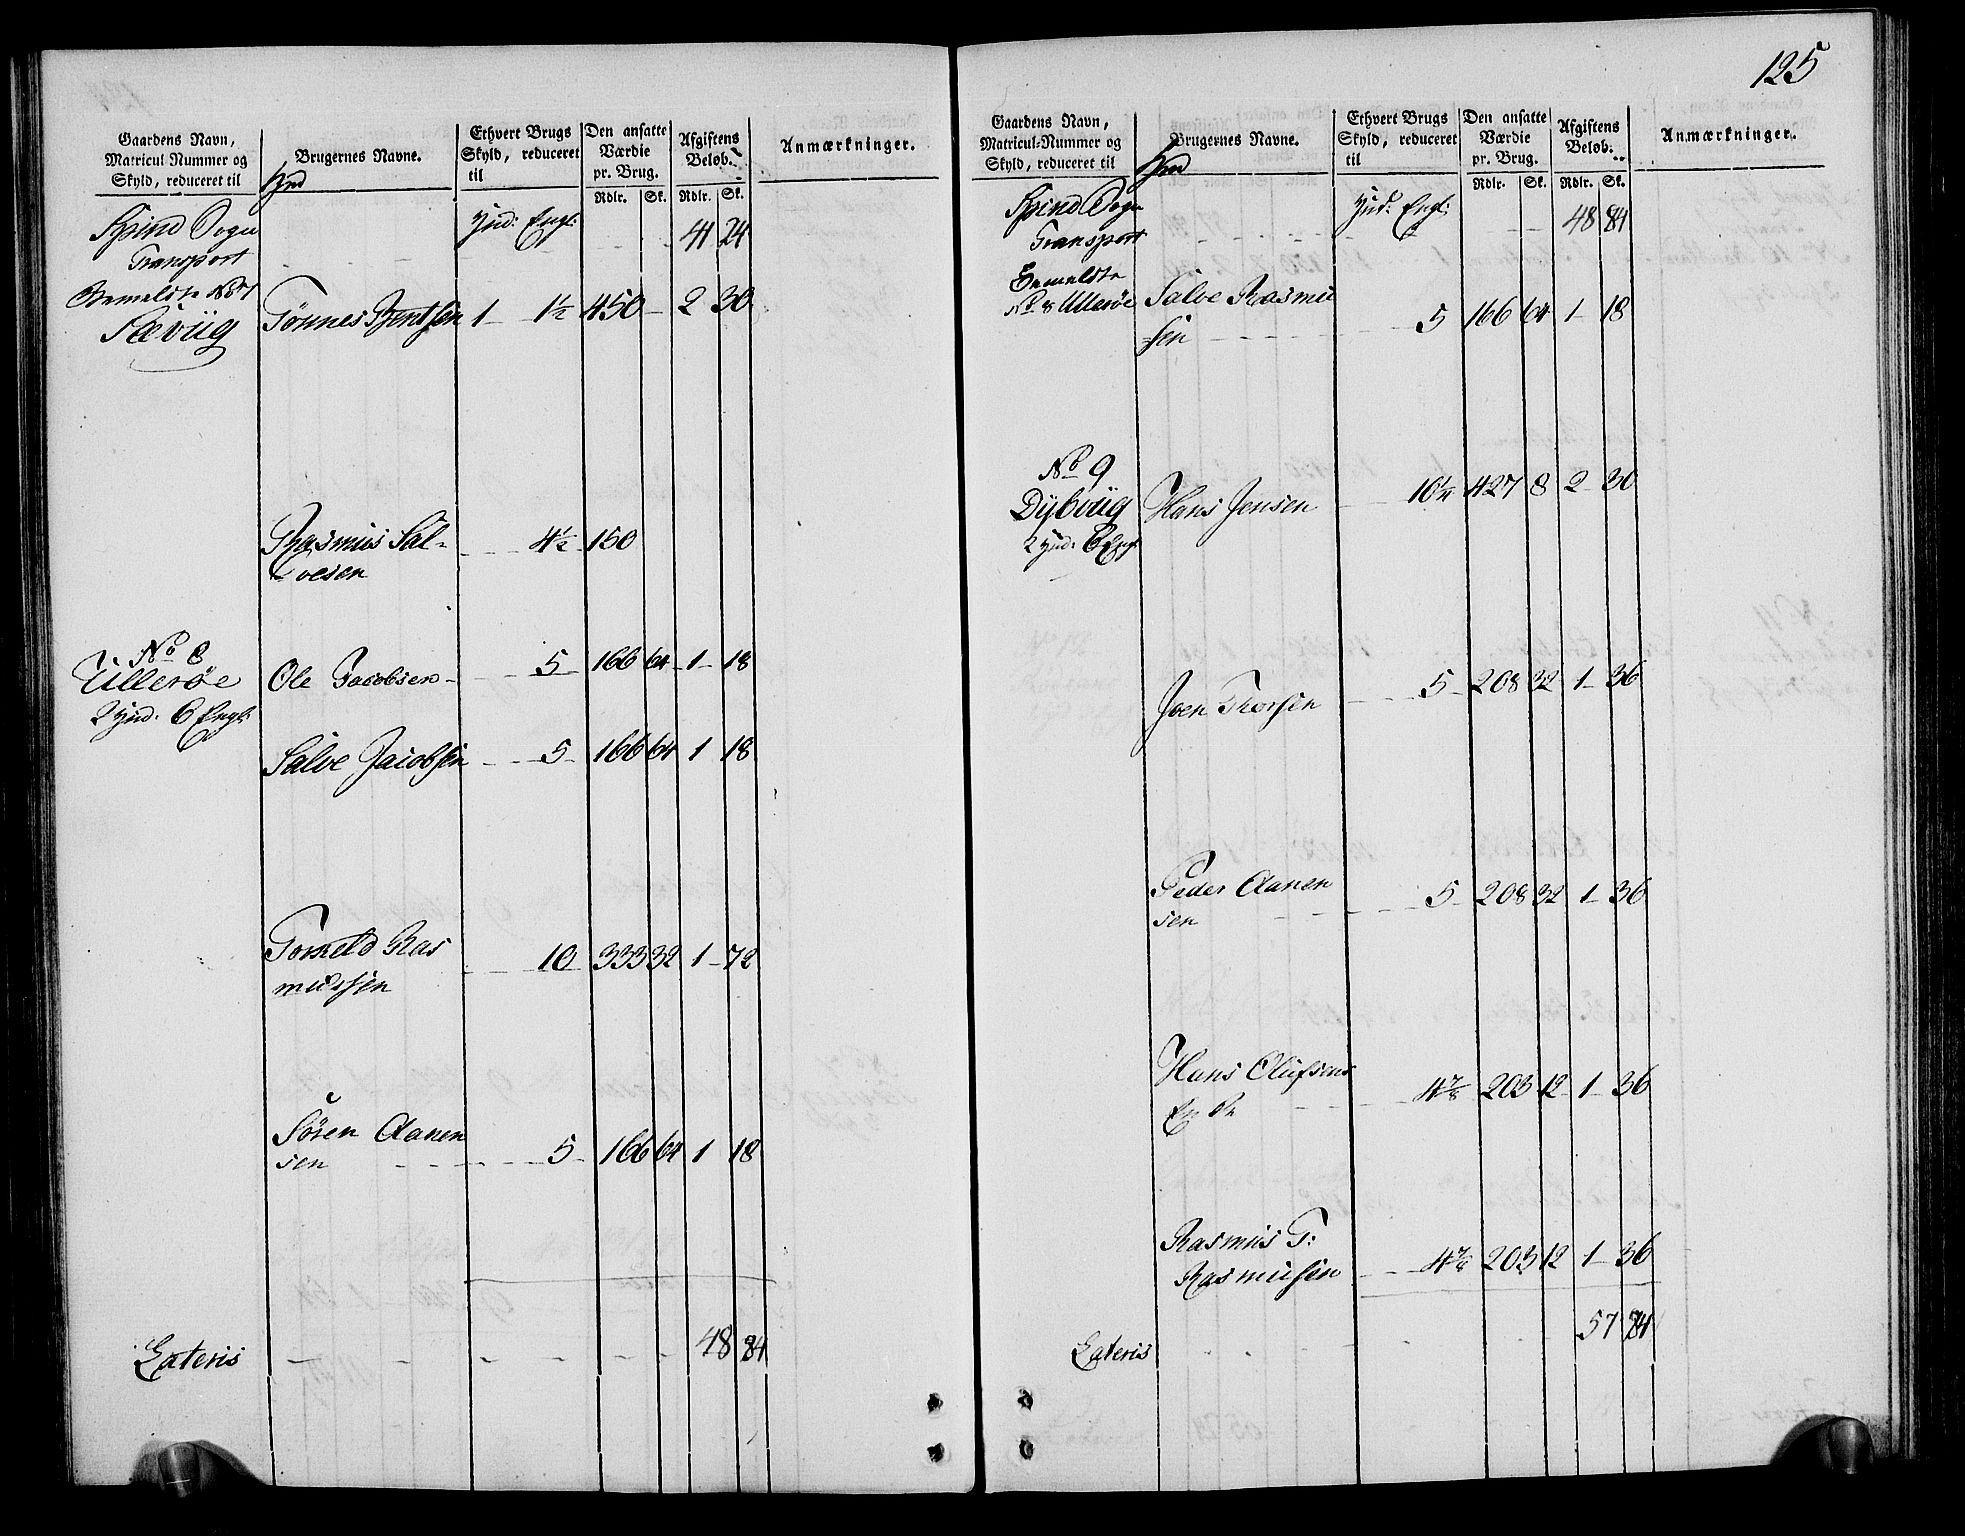 Gaardens Navn,
Matricul-Nummer og
Skyld, reduceret til
Brugernes Navne.
Ethvert Brugs
Skyld, reduceret
til
Den ansatte
Værdie
pr. Brug.
Rdlr. Sk.
Afgiftens
Beløb.
Rdlr. Sk.
Anmærkninger.
Spind Sogn
Transport
Hud: Engl: 41 24
Bemeldte No 7
Sævüg
Tønnes Berntsen 1 1½ 450 2 30
Rasmus Sal-
vesen 4½ 150
No 8
Ullerøe
2 hud: 6 Engl:
Ole Jacobsen 5 166 64 1 18
Salve Jacobsen 5 166 64 1 18
Torkeld Ras
mussen 10 333 32 1 72
Sören Aanen
sen 5 166 64 1 18
Lateris 48 84
125
Gaardens Navn,
Matricul-Nummer og
Skyld, reduceret til
Brugernes Navne.
Ethvert Brugs
Skyld, reduceret
til
Den ansatte
Værdie
pr. Brug.
Rdlr. Sk.
Afgiftens
Beløb.
Rdlr. Sk.
Anmærkninger.
Spind Sogn
Transport
Hud: Engl: 48 84
Bemeldte
No 8 Ullerøe
Salve Rasmu
sen 5 166 64 1 18
No 9
Dybvüg
2 hud: 6 Engl:
Hans Jensen 10¼ 427 8 2 30
Joen Thorsen 5 208 32 1 36
Peder Aanen
sen 5 208 32 1 36
Hans Olufsens
Enke 4⅞ 203 12 1 36
Rasmus T:
Rasmusen 4⅞ 203 12 1 36
Lateris 57 84